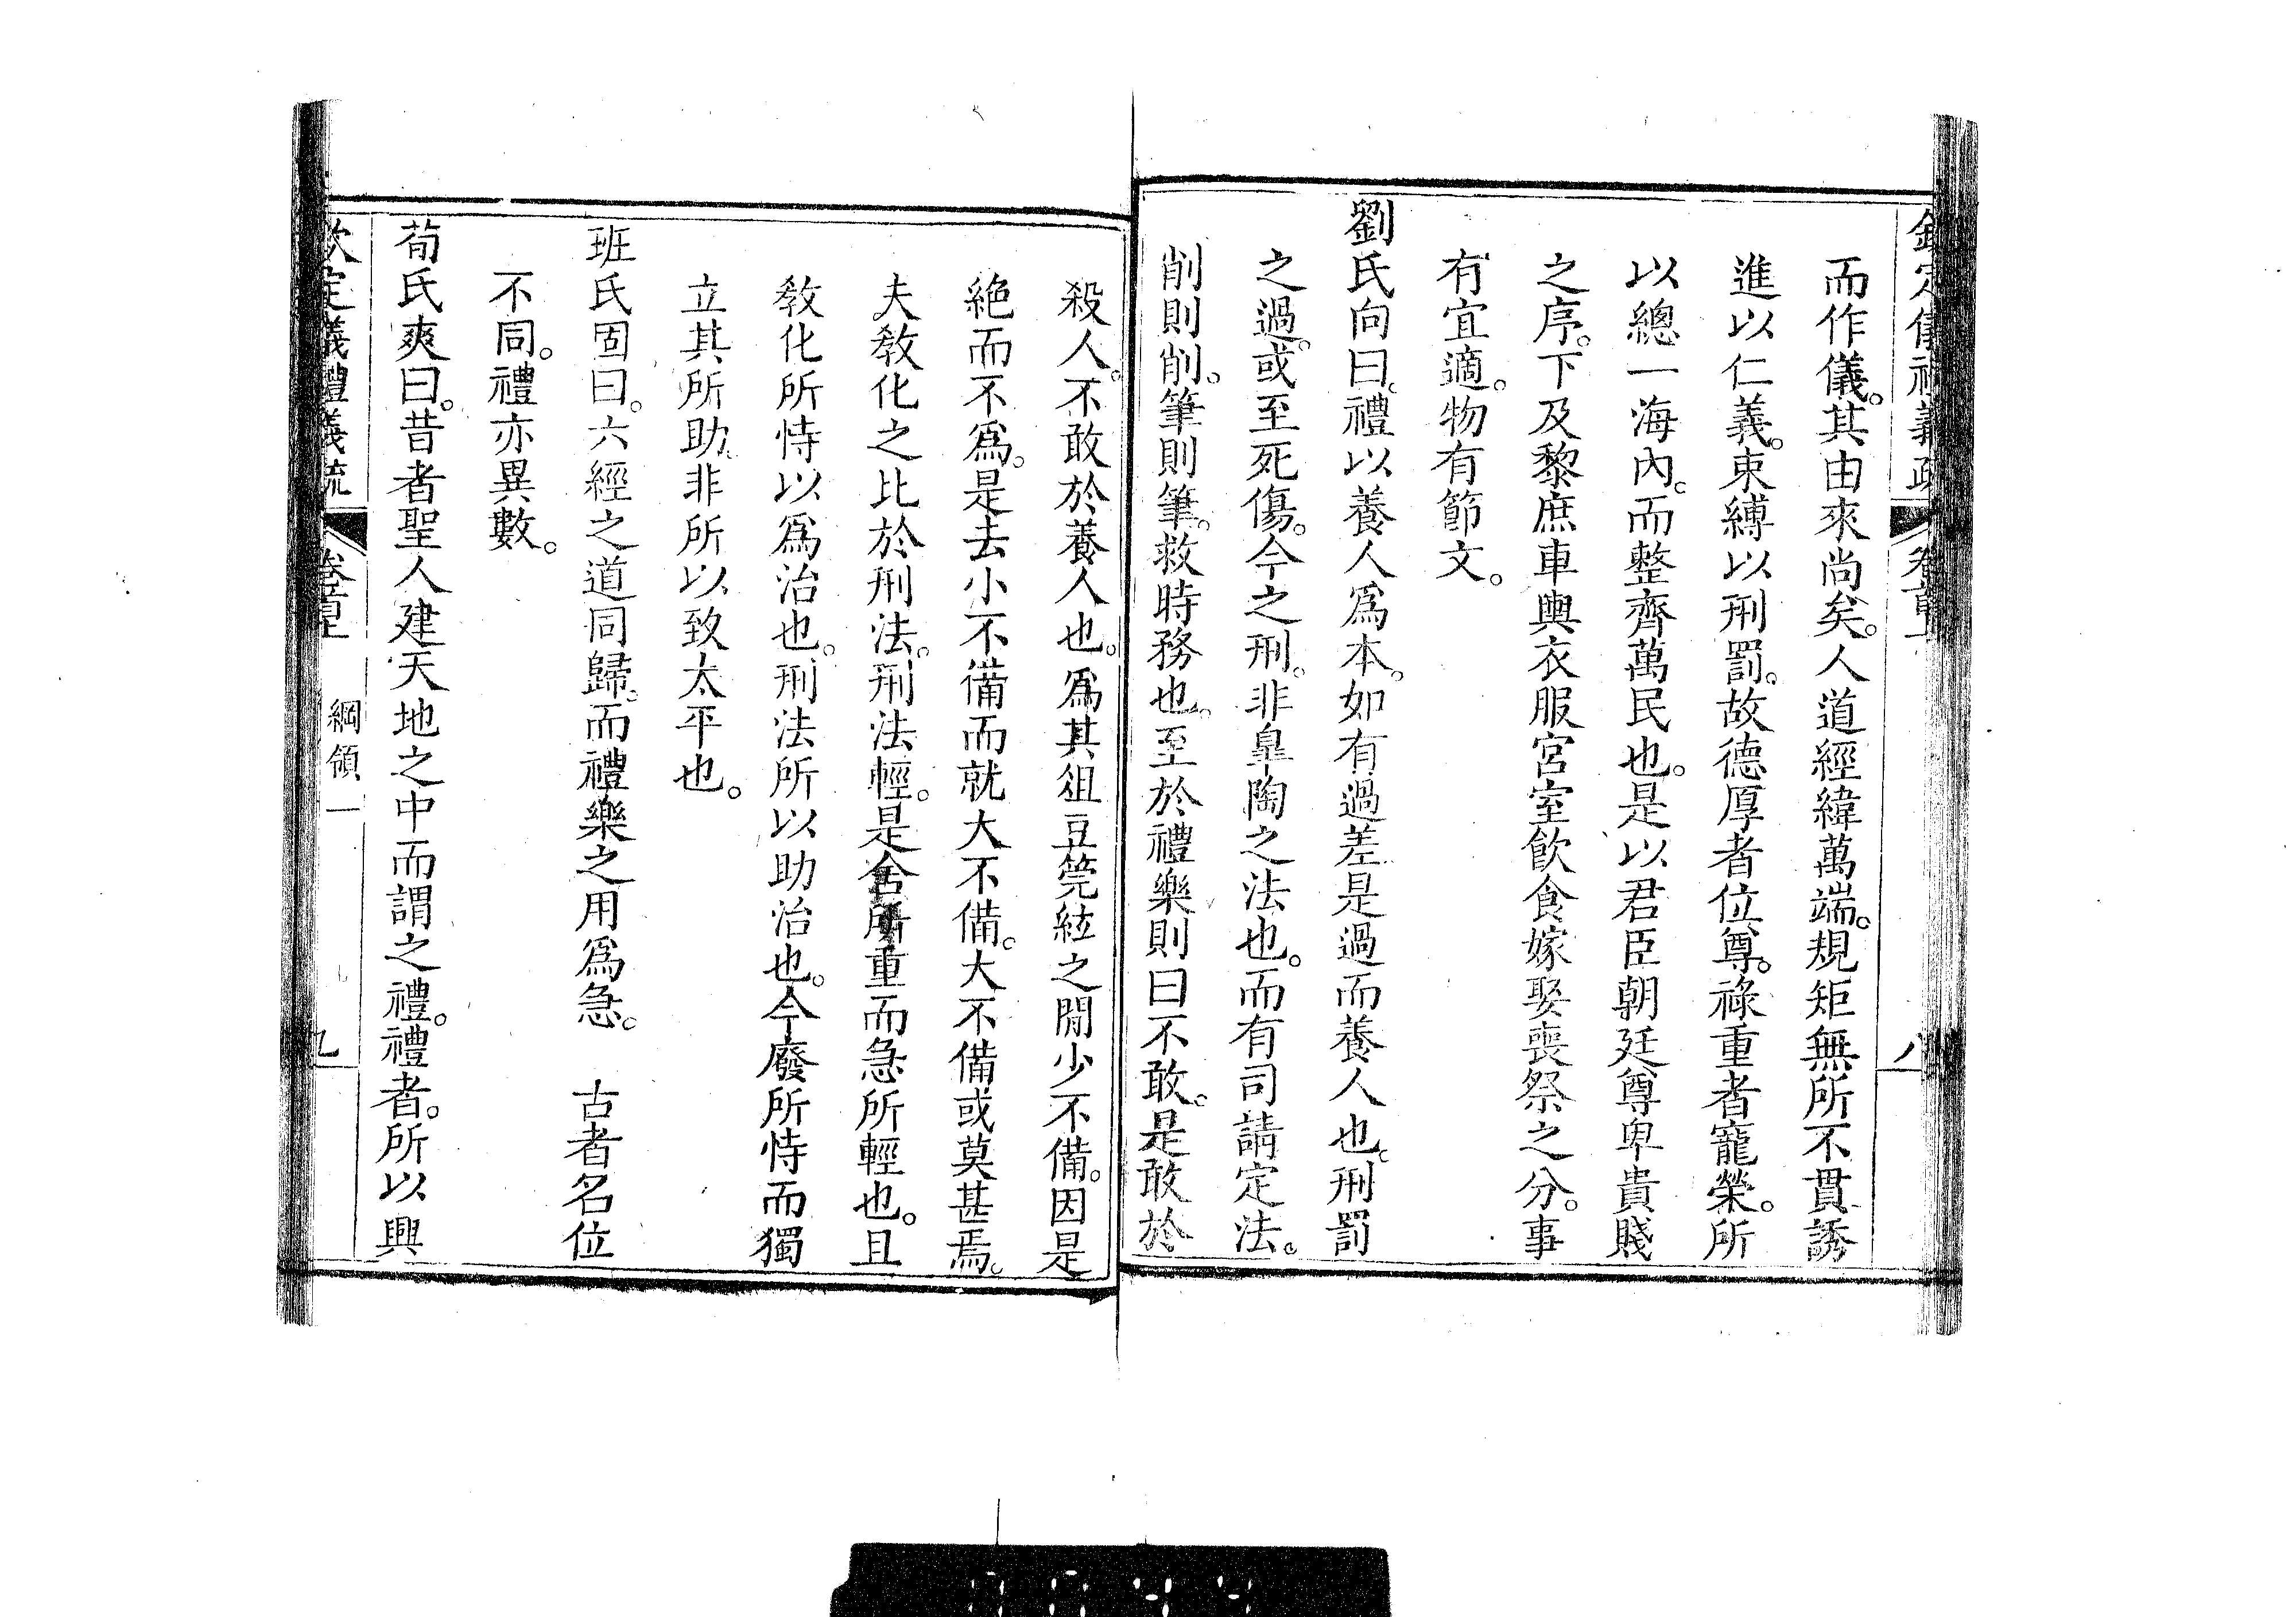 欽定儀禮義疏 卷首上 八
而作儀。其由來尚矣。人道經緯萬端。規矩無所不貫誘
進以仁義。束縛以刑罰。故德厚者位尊。祿重者寵榮。所
以總一海內。而整齊萬民也。是以君臣朝廷尊卑貴賤
之序。下及黎庶車輿衣服宮室飲食嫁娶喪祭之分。事
有宜適。物有節文。
劉氏向曰。禮以養人爲本。如有過差是過而養人也。刑罰
之過。或至死傷。今之刑。非臯陶之法也。而有司請定法。
削則削。筆則筆。救時務也。至於禮樂則曰不敢。是敢於
殺人。不敢於養人也。爲其俎豆筦絃之閒少不備。因是
絕而不爲。是去小不備而就大不備。大不備或莫甚焉。
夫敎化之比於刑法。刑法輕。是舍所重而急所輕也。且
敎化所恃以爲治也。刑法所以助治也。今廢所恃而獨
立其所助。非所以致太平也。
班氏固曰。六經之道同歸。而禮樂之用爲急。 古者名位
不同。禮亦異數。
荀氏爽曰。昔者聖人建天地之中而謂之禮。禮者。所以興
欽定儀禮義疏 卷首上 綱領一 九